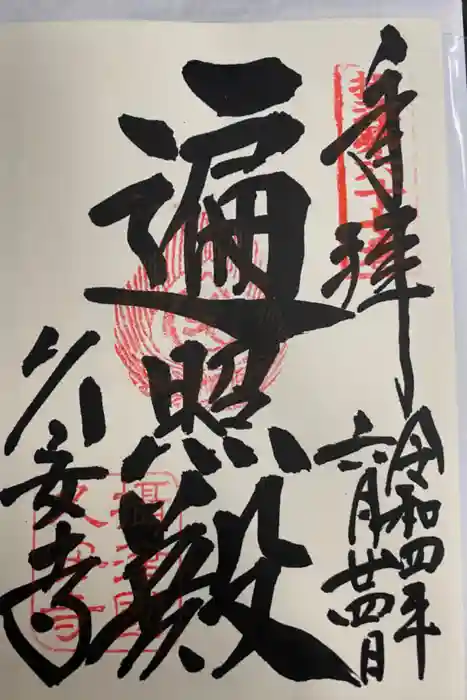 奉拝
令和四年
六月廿四日
遍照殿
久安寺